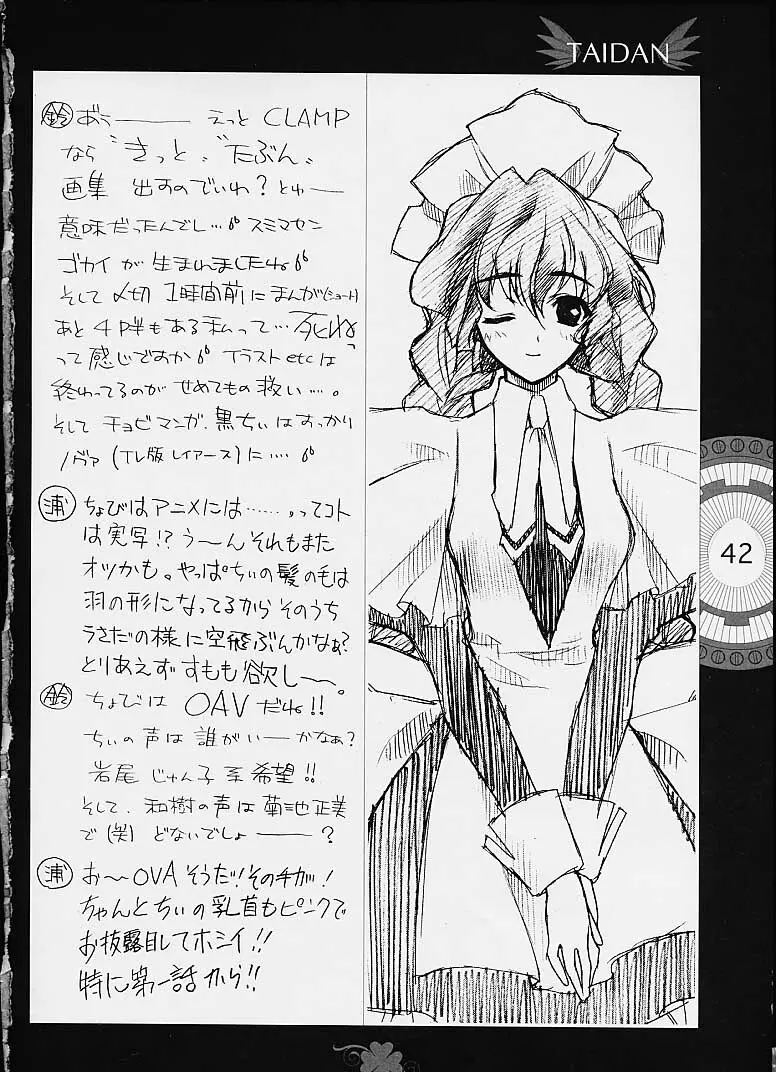 TAIDAN
鈴 あぅ―― えっと CLAMP
なら "きっと、" "たぶん、
画集 出すのでいわ?とゅー
意味だったんでし…。スミマセン
ゴカイが生まれましたね
そして 〆切 1時間前にまんが(ショート)
あと4P半もある私って…死ね
って感じですか イラストetcは
終わってるのが せめてもの救い…。
そして チョビマンガ、黒ちぃはすっかり
ノヴァ(TV版レイアース)に…
浦 ちょびはアニメには……、ってコト
は実写!?う〜んそれもまた
オツかも。やっぱちぃの髪の毛は
羽の形になってるから そのうち
うさだの様に空飛ぶんかなぁ?
とりあえず すもも欲し〜。
鈴 ちょびは OAVだね!!
ちぃの声は 誰がいーかなぁ?
岩尾 じゅん子 系 希望!!
そして、和樹の声は菊池正美
で(笑) どないでしょ――?
浦 お〜OVAそうだ!その手が!
ちゃんとちぃの乳首もピンクで
お披露目してホシイ!!
特に第一話から!!
42